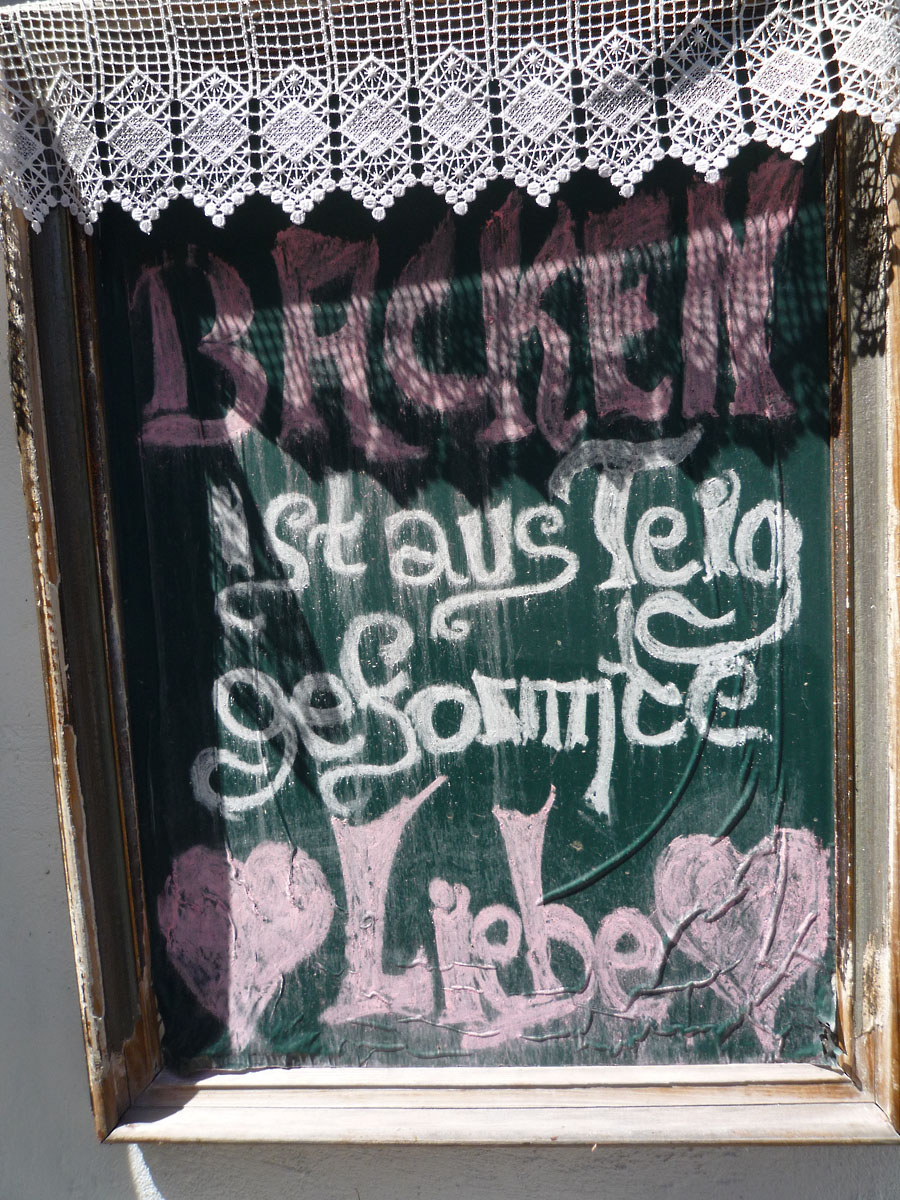 BACKEN
ist aus Teig
geformte
Liebe